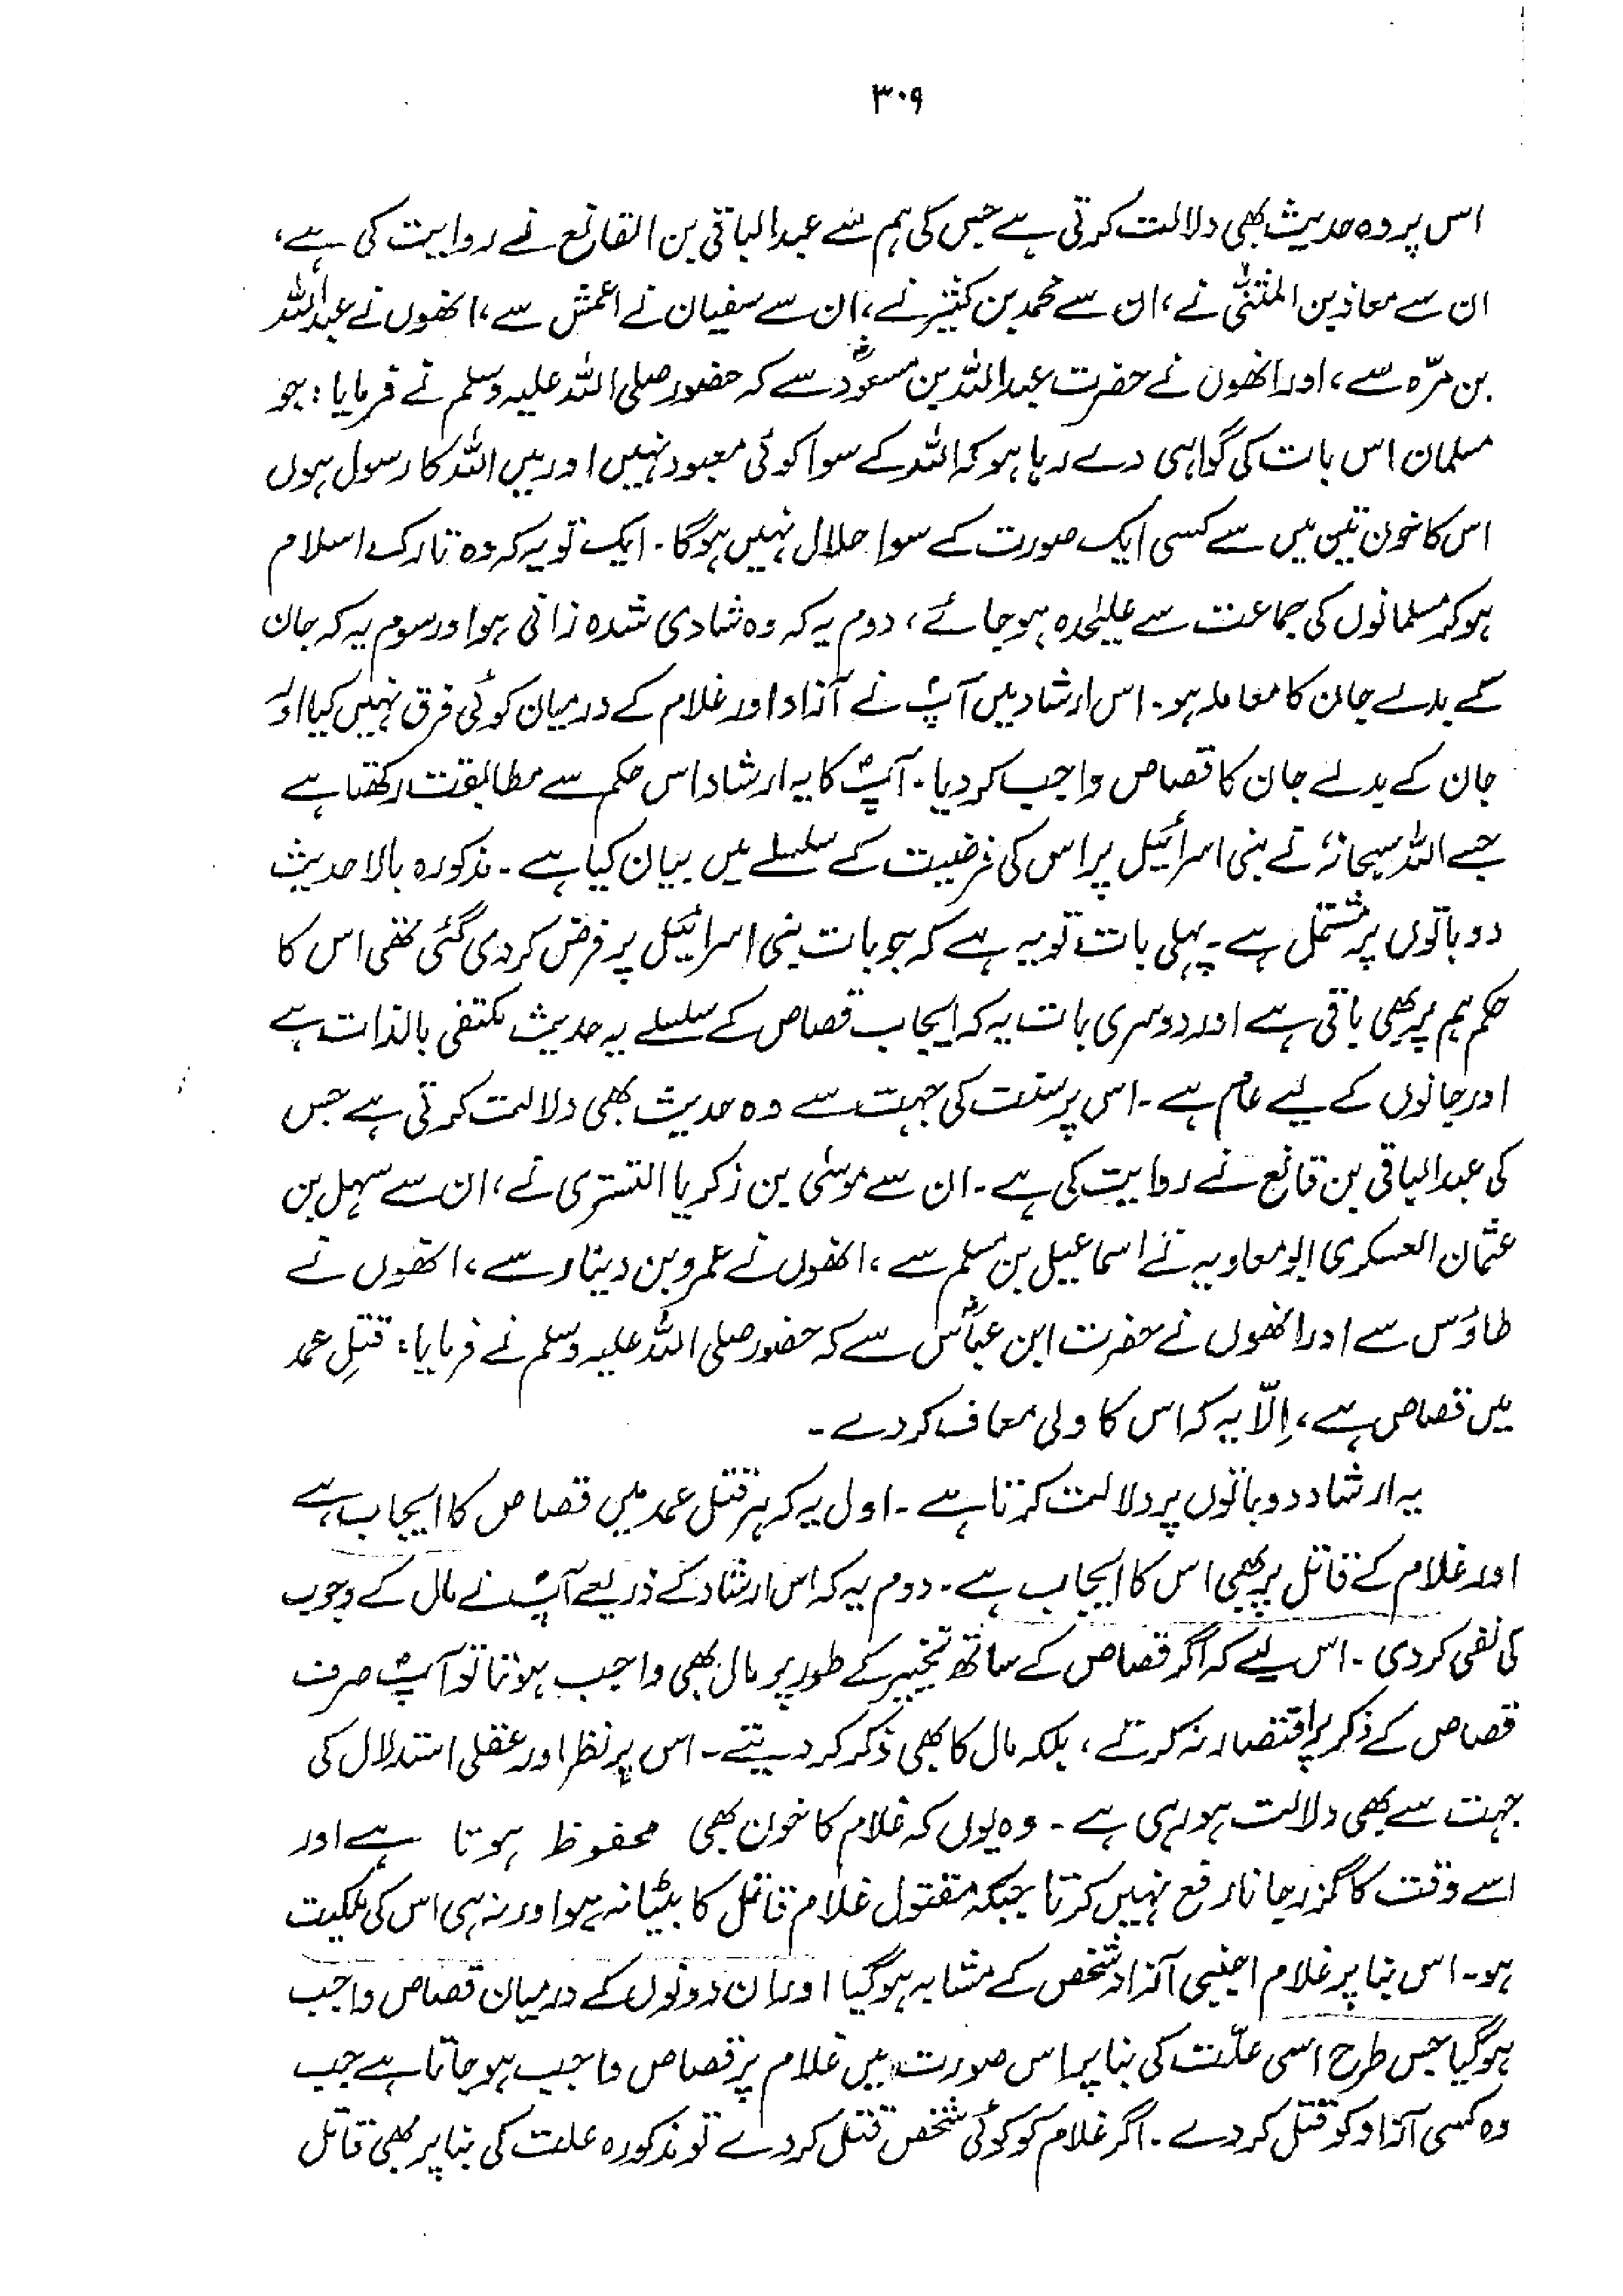 ۳۰۹
اس پر وہ حدیث بھی دلالت کرتی ہے جس کی ہم سے عبدالباقی بن القانع نے روایت کی ہے،
ان سے معاذ بن المثنیٰ نے، ان سے محمد بن کثیر نے، ان سے سفیان نے اعمش سے، انھوں نے عبداللہ
بن مرّہ سے، اور انھوں نے حضرت عبداللہ بن مسعودؓ سے کہ حضور صلی اللہ علیہ وسلم نے فرمایا: جو
مسلمان اس بات کی گواہی دے رہا ہو کہ اللہ کے سوا کوئی معبود نہیں اور میں اللہ کا رسول ہوں
اس کا خون تین میں سے کسی ایک صورت کے سوا حلال نہیں ہوگا۔ ایک تو یہ کہ وہ تارک اسلام
ہو کر مسلمانوں کی جماعت سے علیٰحدہ ہو جائے، دوم یہ کہ وہ شادی شدہ زانی ہو اور سوم یہ کہ جان
کے بدلے جان کا معاملہ ہو۔ اس ارشاد میں آپؐ نے آزاد اور غلام کے درمیان کوئی فرق نہیں کیا اور
جان کے بدلے جان کا قصاص واجب کر دیا۔ آپؐ کا یہ ارشاد اس حکم سے مطابقت رکھتا ہے
جسے اللہ سبحانہٗ نے بنی اسرائیل پر اس کی فرضیت کے سلسلے میں بیان کیا ہے۔ مذکورہ بالا حدیث
دو باتوں پر مشتمل ہے۔ پہلی بات تو یہ ہے کہ جو بات بنی اسرائیل پر فرض کر دی گئی تھی اس کا
حکم ہم پر بھی باقی ہے اور دوسری بات یہ کہ ایجاب قصاص کے سلسلے یہ حدیث مکتفی بالذات ہے
اور جانوں کے لیے عام ہے۔ اس پر سنت کی جہت سے وہ حدیث بھی دلالت کرتی ہے جس
کی عبدالباقی بن قانع نے روایت کی ہے۔ ان سے موسیٰ بن زکریا التستری نے، ان سے سہل بن
عثمان العسکری ابو معاویہ نے اسماعیل بن مسلم سے، انھوں نے عمرو بن دینار سے، انھوں نے
طاؤس سے اور انھوں نے حضرت ابن عباسؓ سے کہ حضور صلی اللہ علیہ وسلم نے فرمایا: قتلِ عمد
میں قصاص ہے، اِلّا یہ کہ اس کا ولی معاف کر دے۔
یہ ارشاد دو باتوں پر دلالت کرتا ہے۔ اول یہ کہ ہر قتل عمد میں قصاص کا ایجاب ہے
اور غلام کے قاتل پر بھی اس کا ایجاب ہے۔ دوم یہ کہ اس ارشاد کے ذریعے آپؐ نے مال کے وجوب
کی نفی کر دی۔ اس لیے کہ اگر قصاص کے ساتھ تخییر کے طور پر مال بھی واجب ہوتا تو آپؐ صرف
قصاص کے ذکر پر اقتصار نہ کرتے، بلکہ مال کا بھی ذکر کر دیتے۔ اس پر نظر اور عقلی استدلال کی
جہت سے بھی دلالت ہو رہی ہے۔ وہ یوں کہ غلام کا خون بھی محفوظ ہوتا ہے اور
اسے وقت کا گزر جانا رفع نہیں کرتا جبکہ مقتول غلام قاتل کا بیٹا نہ ہو اور نہ ہی اس کی ملکیت
ہو۔ اس بنا پر غلام اجنبی آزاد شخص کے مشابہ ہو گیا اور ان دونوں کے درمیان قصاص واجب
ہو گیا جس طرح اسی علّت کی بنا پر اس صورت میں غلام پر قصاص واجب ہو جاتا ہے جب
وہ کسی آزاد کو قتل کر دے۔ اگر غلام کو کوئی شخص قتل کر دے تو مذکورہ علت کی بنا پر بھی قاتل